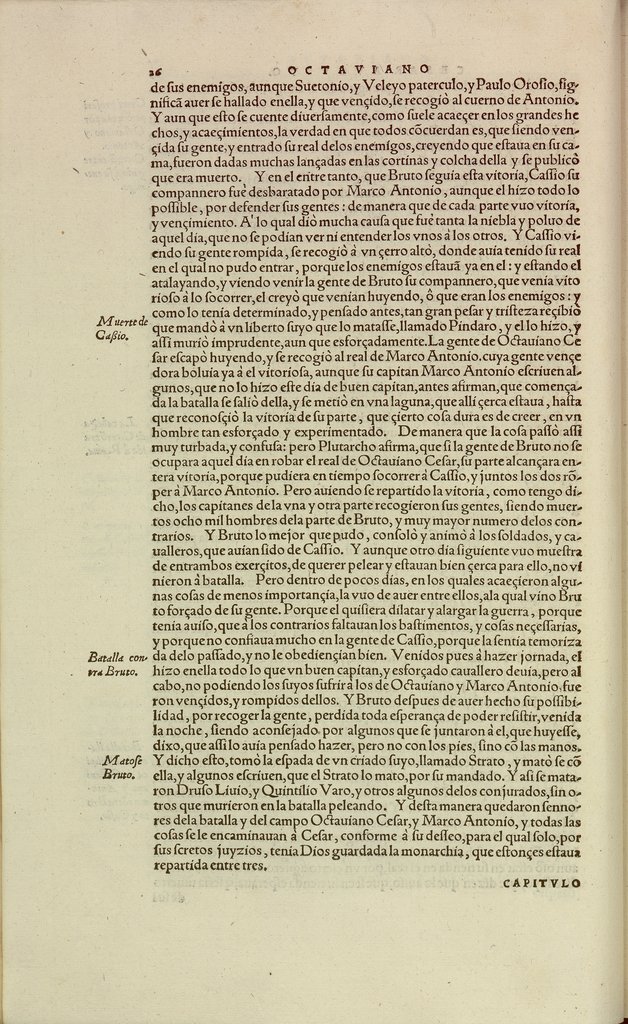 26 OCTAVIANO
de sus enemígos, aunque Suetonío, y Veleyo paterculo, y Paulo Orosio, sig-
nificã auer se hallado enella, y que vençído, se recogíò al cuerno de Antonío.
Y aun que esto se cuente díuersamente, como suele acaeçer en los grandes he
chos, y acaeçimíentos, la verdad en que todos cõcuerdan es, que síendo ven-
çída su gente, y entrado su real delos enemígos, creyendo que estaua en su ca-
ma, fueron dadas muchas lançadas en las cortinas y colcha della y se publicò
que era muerto. Y en el entre tanto, que Bruto seguía esta vítoría, Cassío su
compannero fuè desbaratado por Marco Antonío, aunque el hízo todo lo
possible, por defender sus gentes : de manera que de cada parte vuo vítoría,
y vençímíento. A' lo qual díò mucha causa que fuè tanta la níebla y poluo de
aquel día, que no se podían ver ní entender los vnos à los otros. Y Cassío ví-
endo su gente rompída, se recogíò à vn çerro altò, donde auía tenído su real
en el qual no pudo entrar, porque los enemígos estauã ya en el : y estando el
atalayando, y víendo venír la gente de Bruto su compannero, que venía víto
ríoso à lo socorrer, el creyò que venían huyendo, ò que eran los enemígos : y
Muerte de
Caßio.
como lo tenía determínado, y pensado antes, tan gran pesar y trísteza recíbíò
que mandò à vn líberto suyo que lo matasse, llamado Píndaro, y el lo hízo, y
assí muríò imprudente, aun que esforçadamente. La gente de Octauíano Ce
sar escapò huyendo, y se recogíò al real de Marco Antonío. cuya gente vençe
dora boluía ya à el vítoríosa, aunque su capítan Marco Antonío escríuen al-
gunos, que no lo hízo este día de buen capítan, antes afirman, que comença-
da la batalla se salíò della, y se metíò en vna laguna, que allí çerca estaua, hasta
que reconosçíò la vítoría de su parte, que çíerto cosa dura es de creer, en vn
hombre tan esforçado y experímentado. De manera que la cosa passò assí
muy turbada, y confusa: pero Plutarcho afirma, que si la gente de Bruto no se
ocupara aquel día en robar el real de Octauíano Cesar, su parte alcançara en-
tera vítoría, porque pudíera en tíempo socorrer à Cassío, y juntos los dos rõ-
per à Marco Antonío. Pero auíendo se repartído la vítoría, como tengo dí-
cho, los capítanes de la vna y otra parte recogíeron sus gentes, síendo muer-
tos ocho míl hombres dela parte de Bruto, y muy mayor numero delos con-
traríos. Y Bruto lo mejor que pudo, consolò y anímò à los soldados, y ca-
ualleros, que auían sído de Cassío. Y aunque otro día síguíente vuo muestra
de entrambos exerçítos, de querer pelear y estauan bíen çerca para ello, no ví
níeron à batalla. Pero dentro de pocos días, en los quales acaeçíeron algu-
nas cosas de menos ímportançía, la vuo de auer entre ellos, ala qual víno Bru
to forçado de su gente. Porque el quísíera dílatar y alargar la guerra, porque
tenía auíso, que à los contraríos faltauan los bastímentos, y cosas neçessarías,
y porque no confiaua mucho en la gente de Cassío, porque la sentía temoríza
Batalla con-
tra Bruto.
da delo passado, y no le obedíençían bíen. Venídos pues à hazer jornada, el
hízo enella todo lo que vn buen capítan, y esforçado cauallero deuía, pero al
cabo, no podíendo los suyos sufrír à los de Octauíano y Marco Antonío: fue
ron vençídos, y rompídos dellos. Y Bruto despues de auer hecho su possíbí-
lídad, por recoger la gente, perdída toda esperança de poder resístír, venída
la noche, síendo aconsejado por algunos que se juntaron à el, que huyesse,
díxo, que assí lo auía pensado hazer, pero no con los píes, síno cõ las manos.
Matose
Bruto.
Y dícho esto, tomò la espada de vn críado suyo, llamado Strato, y matò se cõ
ella, y algunos escríuen, que el Strato lo mato, por su mandado. Y assí se mata-
ron Druso Líuío, y Quíntílío Varo, y otros algunos delos conjurados, sin o-
tros que muríeron en la batalla peleando. Y desta manera quedaron senno-
res dela batalla y del campo Octauíano Cesar, y Marco Antonío, y todas las
cosas se le encamínauan à Cesar, conforme à su desseo, para el qual solo, por
sus scretos juyzíos, tenía Díos guardada la monarchía, que estonçes estaua
repartída entre tres.
CAPITVLO